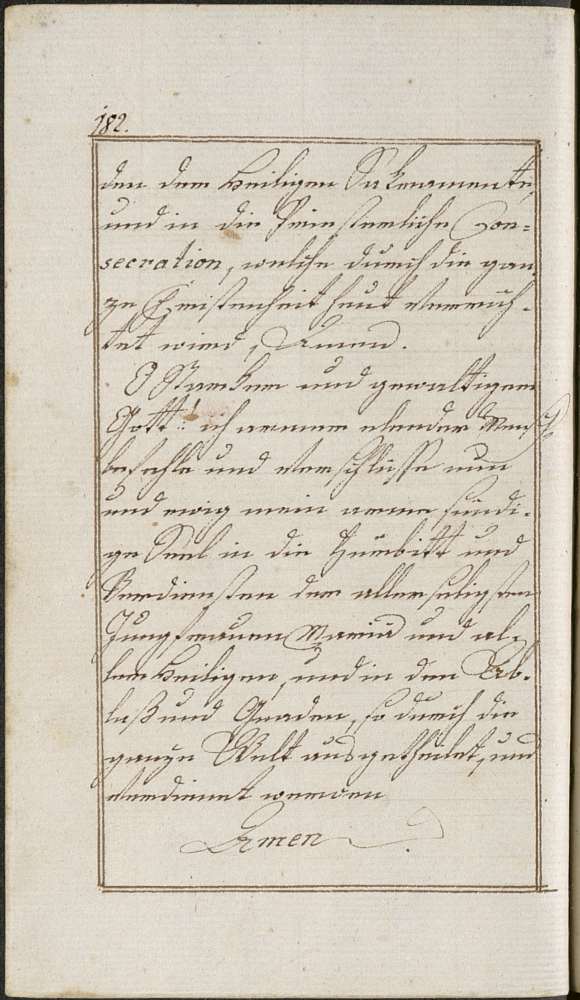 182.
den dem Heiligen Sakramente,
und in die Priesterliche Con=
secration, welche durch die gan
ze Christenheit heut verrich-
tet wird, Amen.
O Starker und gewaltigen
Gott! ich armer elender Mensch
befehle und verschlüsse nun
und ewig mein arme sündi-
ge Seel in die Fürbitt und
Verdiensten der allerseligsten
Jungfrauen Mariä und al-
len Heiligen, und in den Ab-
laß und Gnaden, so durch die
ganze Welt ausgetheilet, und
verdienet werden
Amen